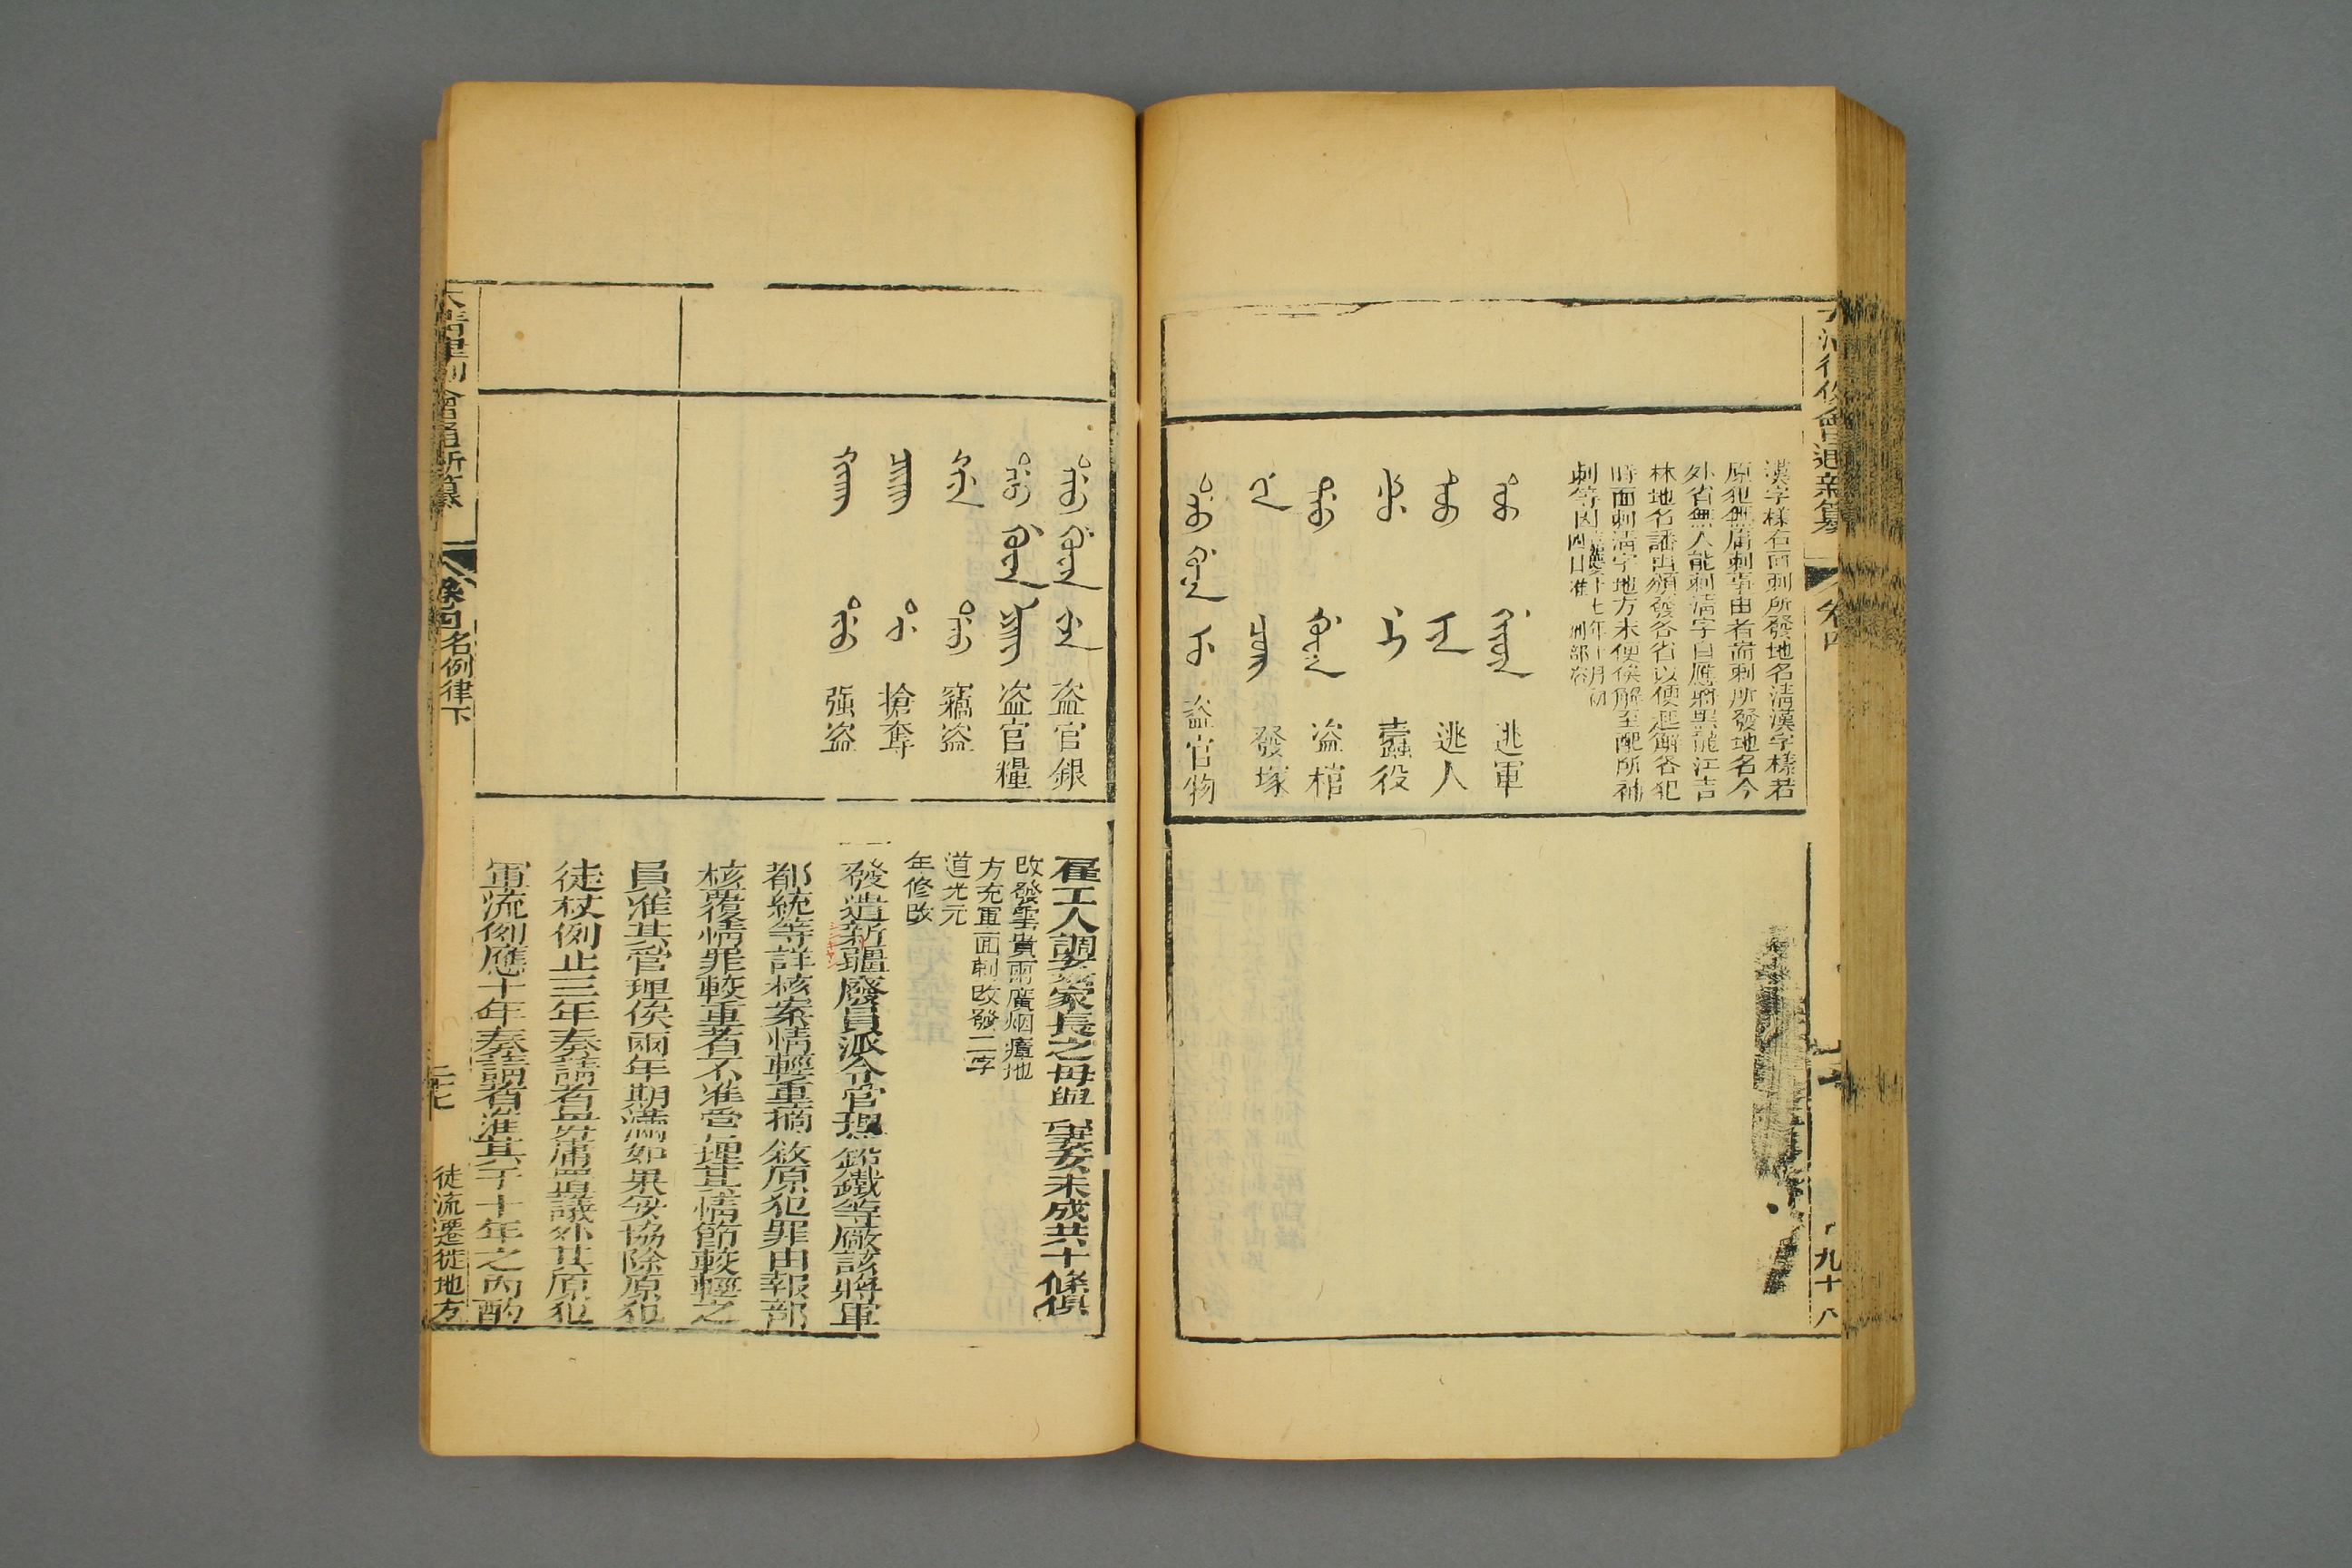 漢字樣右面刺所發地名清漢字樣若
原犯無庸刺事由者需刺所發地名今
外省無人能刺清字自應將黑龍江吉
林地名譒出頒發各省以便起解各犯
時面刺清字地方未便俟解至配所補
刺等因
逃軍
逃人
蠹役
盗棺
發塚
盗官物
九十八
盗官銀
盗官糧
竊盗
搶奪
强盗
雇工人調姦家長之母與妻女未成共十條俱
改發雲貴兩廣烟瘴地
方充軍面刺改發二字
道光元
年修改
一發遣新疆廢員派令管理鉛鐵等廠該將軍
都統等詳核案情輕重摘敘原犯罪由報部
核覆後情罪較重者不准管理其情節較輕之
員准其管理俟兩年期滿如果妥協除原犯
徒杖例止三年奏請者毋庸置議外其原犯
軍流例應十年奏請者准其于十年之内酌
大清律例會通新纂
卷四名例律下
徒流遷徙地方